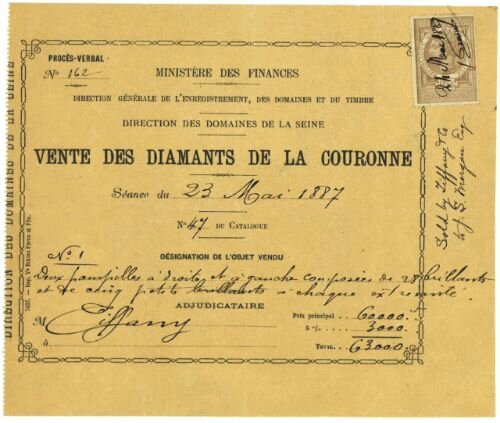 PROCÈS-VERBAL
No 162
MINISTÈRE DES FINANCES
DIRECTION GÉNÉRALE DE L'ENREGISTREMENT, DES DOMAINES ET DU TIMBRE
DIRECTION DES DOMAINES DE LA SEINE
VENTE DES DIAMANTS DE LA COURONNE
Séance du 23 Mai 1887
No 47 DU CATALOGUE
No 1
DÉSIGNATION DE L'OBJET VENDU
Deux pampilles à droite et à gauche composées de 28 brillants
et de cinq petits brillants à chaque extremité.
ADJUDICATAIRE
M Tiffany
à
Prix principal . 60000.
5 o/o. 3000.
TOTAL. . 63000.
DIRECTION DES DOMAINES DE LA SEINE
24 Mai 1887
Sold by Tiffany & Co
to J. S. Morgan Esq